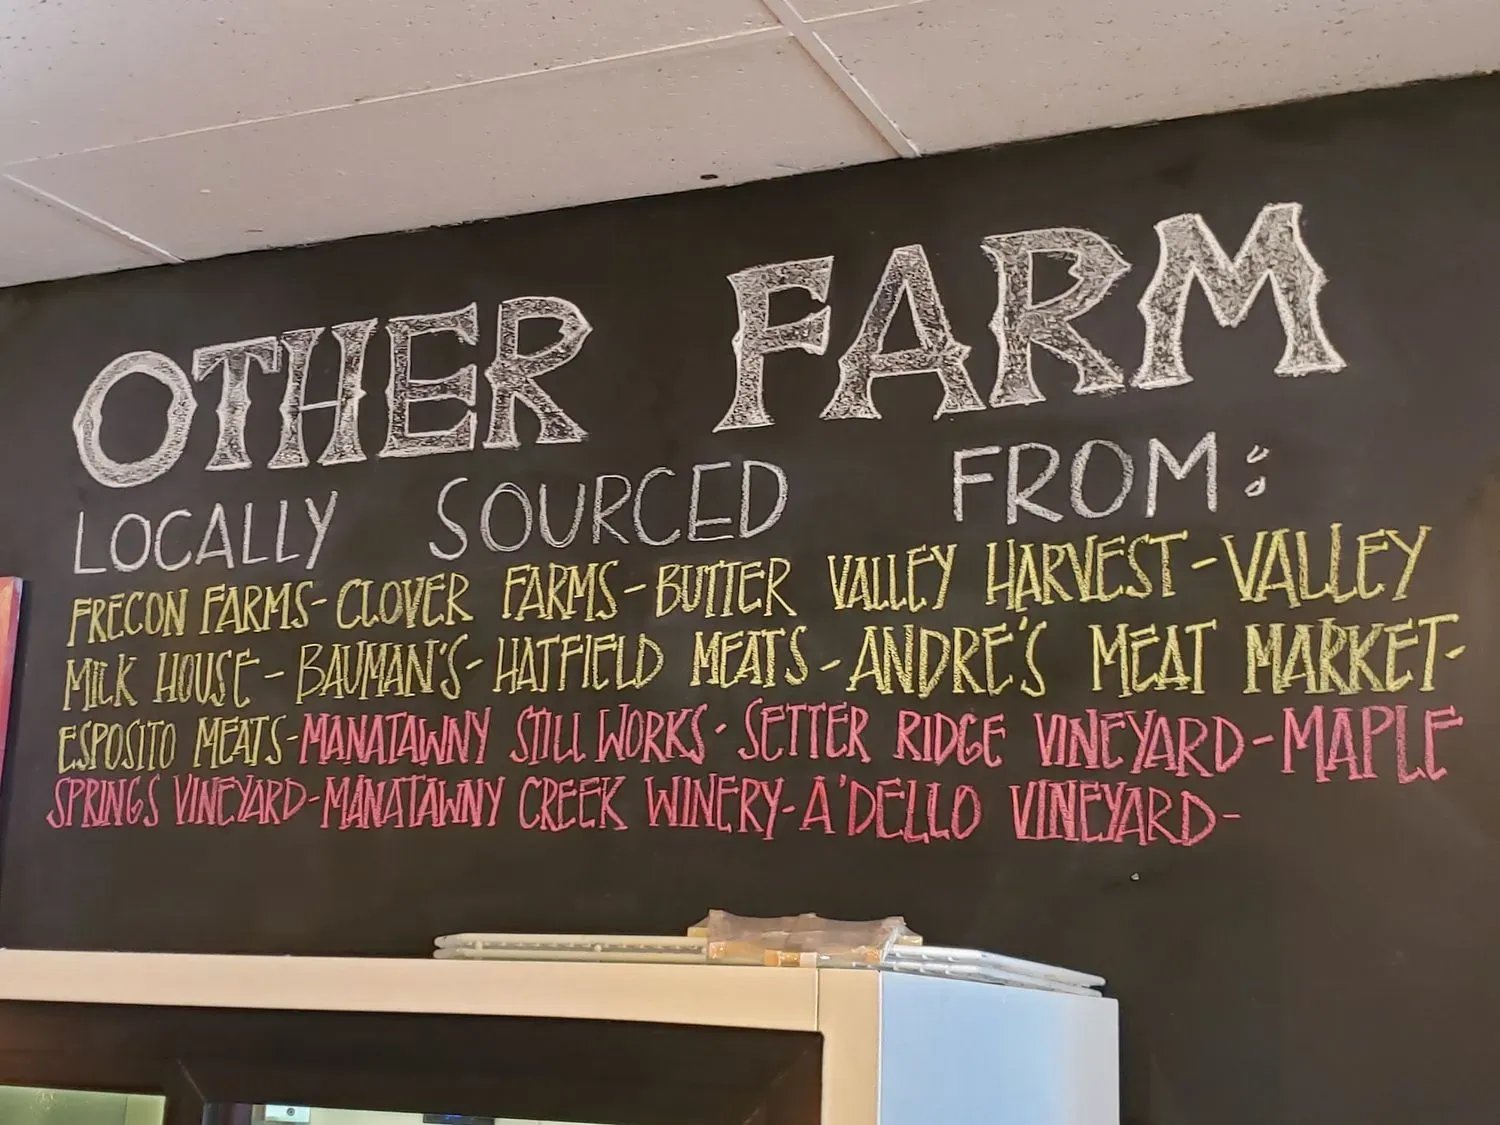 OTHER FARM
LOCALLY SOURCED FROM:
FRECON FARMS-CLOVER FARMS-BUTTER VALLEY HARVEST-VALLEY
MILK HOUSE-BAUMAN'S-HATFIELD MEATS-ANDRE'S MEAT MARKET-
ESPOSITO MEATS-MANATAWNY STILL WORKS-SETTER RIDGE VINEYARD-MAPLE
SPRINGS VINEYARD-MANATAWNY CREEK WINERY-A'DELLO VINEYARD-